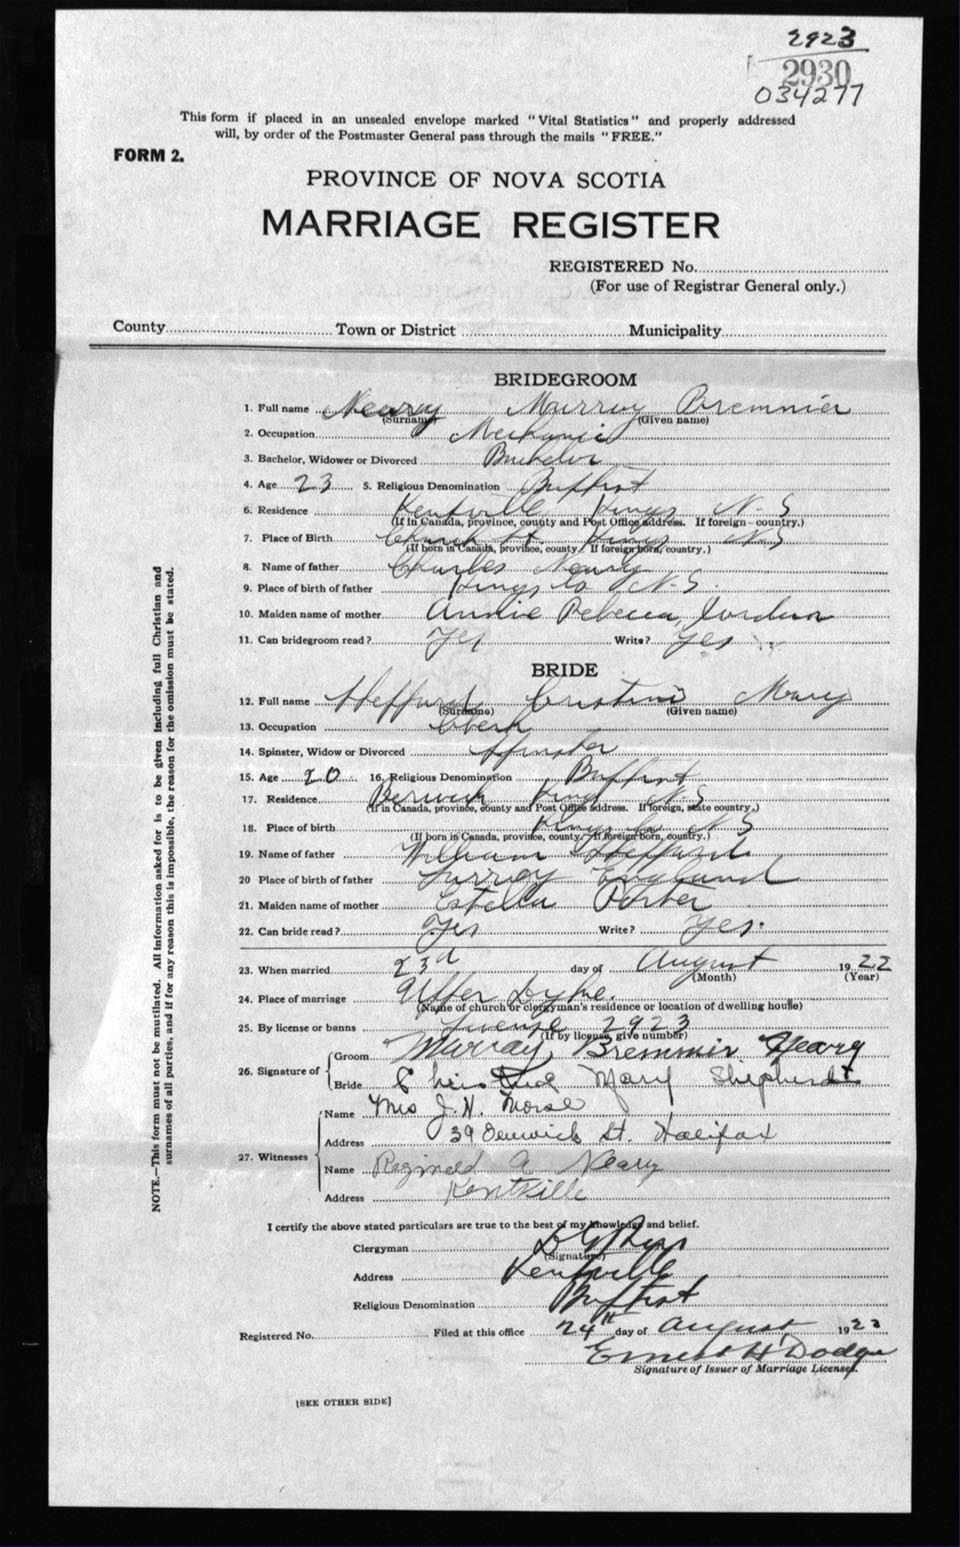 2923
2930
034277
This form if placed in an unsealed envelope marked "Vital Statistics" and properly addressed
will, by order of the Postmaster General pass through the mails "FREE."
FORM 2.
PROVINCE OF NOVA SCOTIA
MARRIAGE REGISTER
REGISTERED No.
(For use of Registrar General only.)
County Town or District Municipality
BRIDEGROOM
1. Full name Neary Murray Bremnier
(Surname) (Given name)
2. Occupation Mechanic
3. Bachelor, Widower or Divorced Bachelor
4. Age 23 5. Religious Denomination Baptist
6. Residence Kentville Kings N.S
(If in Canada, province, county and Post Office address. If foreign—country.)
7. Place of Birth Church St. Kings N.S
(If born in Canada, province, county. If foreign born, country.)
8. Name of father Charles Neary
9. Place of birth of father Kings Co N.S.
10. Maiden name of mother Annie Rebecca Jordan
11. Can bridegroom read? Yes Write? Yes
BRIDE
12. Full name Sheppard Cristina Mary
(Surname) (Given name)
13. Occupation Clerk
14. Spinster, Widow or Divorced Spinster
15. Age 20 16. Religious Denomination Baptist
17. Residence Berwick Kings N.S
(If in Canada, province, county and Post Office address. If foreign, state country.)
18. Place of birth Kings Co N S
(If born in Canada, province, county. If foreign born, country.)
19. Name of father William Sheppard
20 Place of birth of father Surrey England
21. Maiden name of mother Estella Porter
22. Can bride read? Yes Write? Yes.
23. When married 23d day of August 1922
(Month) (Year)
24. Place of marriage Upper Dyke.
(Name of church or clergyman's residence or location of dwelling house)
25. By license or banns License 2923
(If by license, give number)
26. Signature of Groom Murray Bremmir Neary
Bride Mary
27. Witnesses
Name Mrs J. H. Morse
Address 39 St. Halifax
Name Reginald A Neary
Address Kentville
I certify the above stated particulars are true to the best of my knowledge and belief.
Clergyman
(Signature)
Address Kentville
Religious Denomination Baptist
Registered No. Filed at this office 24th day of August 1922
Ernest H Dodge
Signature of Issuer of Marriage Licenses.
[SEE OTHER SIDE]
NOTE.—This form must not be mutilated. All information asked for is to be given including full Christian and
surnames of all parties, and if for any reason this is impossible, the reason for the omission must be stated.